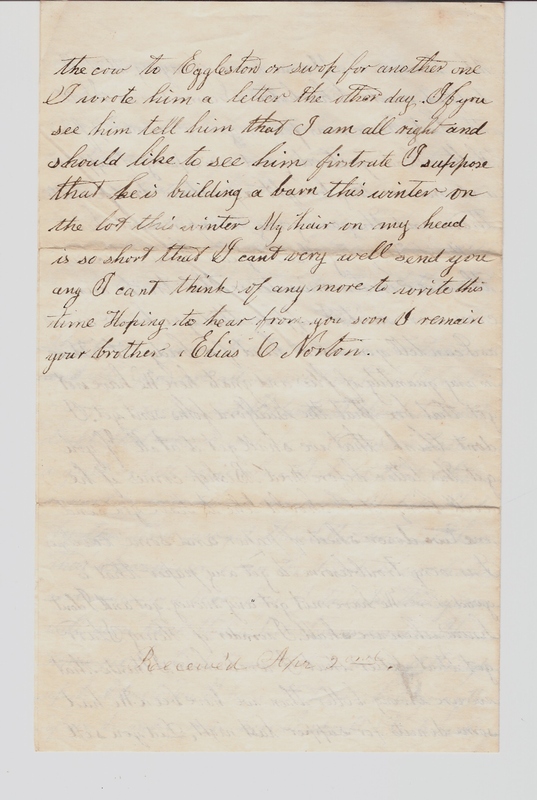 the cow to Eggleston or swop for another one
I wrote him a letter the other day. If you
see him tell him that I am all right and
should like to see him firstrate I suppose
that he is building a barn this winter on
the lot this winter My hair on my head
is so short that I cant very well send you
any I cant think of any more to write this
time Hoping to hear from you soon I remain
your brother Elias C Norton.
Received Apr 2